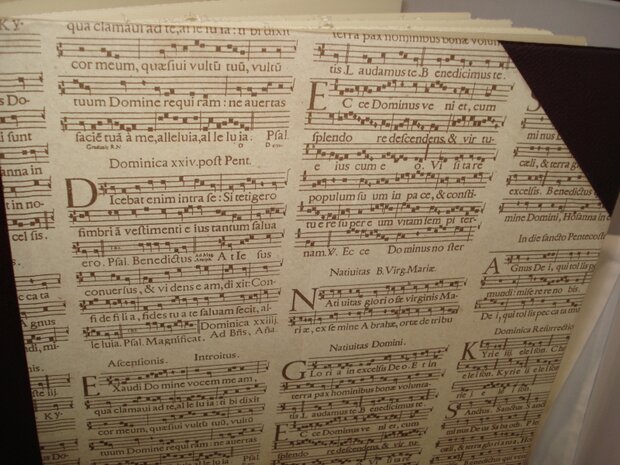 Ky.
is Do-
ri sunt
anna in
in no-
cel sis.
e ca ta
Agnus
di, mi-
Ky.
qua clamaui ad te, al le lu ia : ti bi dixit
cor meum, quæsiui vultũ tuũ, vultũ
tuum Domine requi ram : ne auertas
faciẽ tuã à me, alleluia, al le luia. Psal.
Dominica xxiv. post Pent.
DIcebat enim intra se : Si tetigero
fimbri ã vestimenti e ius tantum salua
ero. Psal. Benedictus A t Ie sus
conuersus, & vi dens e am, di xit : Con
fi de fi li a, fides tu a te saluam fecit, al-
le luia. Psal. Magnificat. Ad Bñs, Aña.
Dominica xxiiij.
Ascensionis. Introitus.
EXaudi Do mine vocem me am,
qua clamaui ad te, al le lu ia : ti bi dixit
cor meum, quæsiui vultũ tuũ, vultũ
tuum Domine requi ram : ne auertas
terra pax hominibus bonæ volun
tis L audamus te. B enedicimus te.
ECce Dominus ve ni et, cum
splendo re descendens, & vir tu-
e ius cum e o. Vi si ta re
populum su um in pa ce, & consti-
tu e re su per e um vitam sem pi ter-
nam. V. Ec ce Do minus no ster
Natiuitas B. Virg. Mariæ.
NAti uitas glori o sæ virginis Ma-
riæ, ex se mine A brahæ, ortæ de tribu
Natiuitas Domini.
GLo ri a in excelsis De o. E t in
terra pax hominibus bonæ volunta-
tis L audamus te. B enedicimus te.
ECce Dominus ve ni et, cum
splendo re descendens, & vir tu-
minus
cæli, & terra g
excelsis. Benedictus
mine Domini, Hosanna in
In die sancto Pentecost
AGnus De i, qui tol lis pec
mundi : mise re re no bis.
De i, qui tol lis pec ca ta
Dominica Resurrectio
KYrie iij. e le i son. C
le i son. Ky ri e e le i son.
SAnctus Sanctus S an
mi nus De us Sa ba oth.